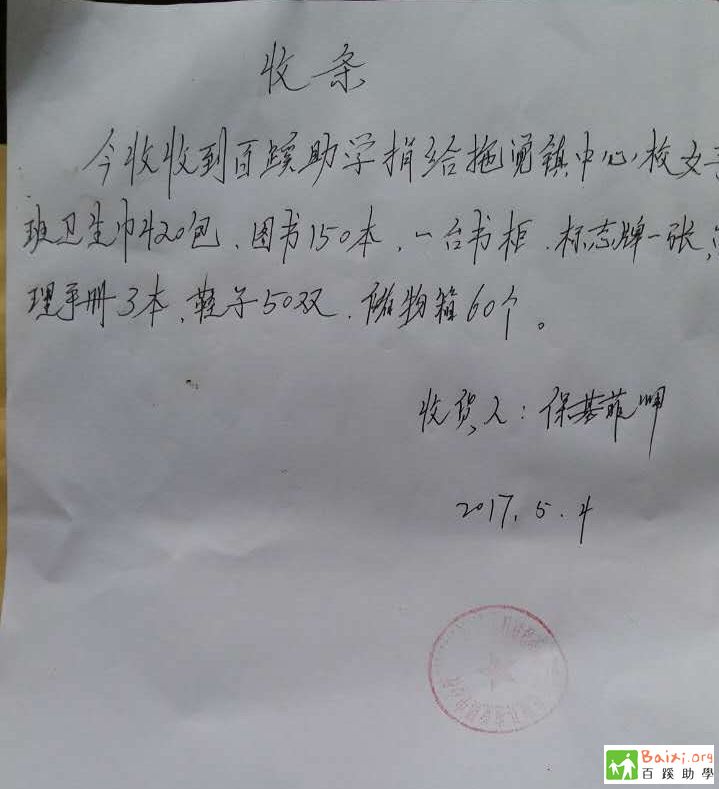 收条
今收收到百蹊助学捐给拖觉镇中心校女子
班卫生巾420包、图书150本、一台书柜、标志牌一张,
理手册3本、鞋子50双、储物箱60个。
收货人:保基菲
2017.5.4
Baixi.org
百蹊助學